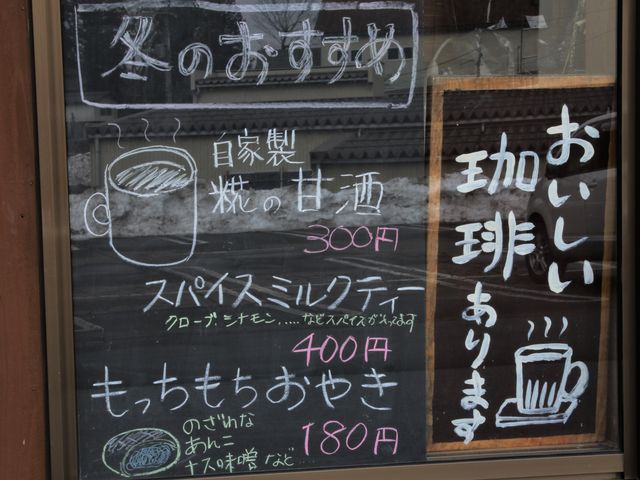 冬のおすすめ
自家製
糀の甘酒
300円
スパイスミルクティー
クローブ、シナモン.....などスパイスが入ってます
400円
もっちもちおやき
のざわな
あんこ
ナス味噌 など
180円
おいしい
珈琲あります